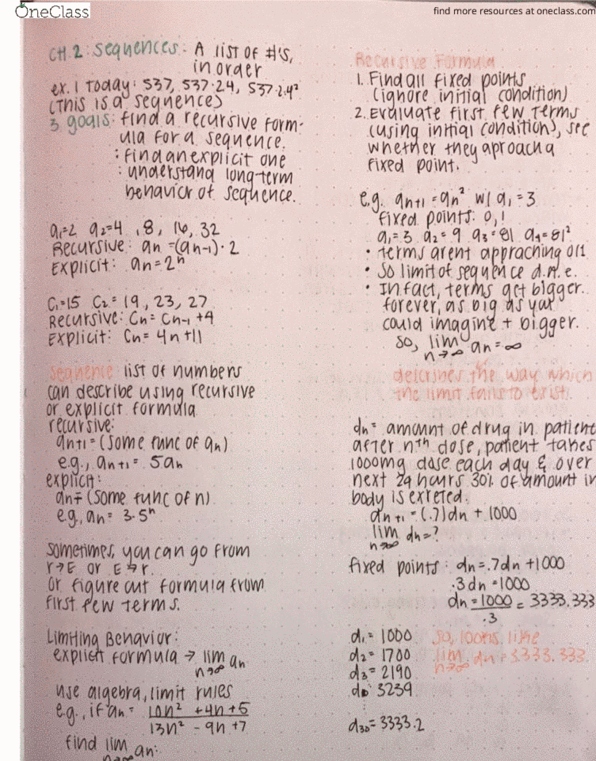 OneClass
find more resources at oneclass.com
CH. 2: Sequences: A list of #'s,
in order
ex. 1 Today: 537, 537·24, 537·2·4²
(This is a sequence)
3 goals: find a recursive form-
ula for a sequence.
: find an explicit one
: understand long-term
behavior of sequence.
a₁=2 a₂=4 , 8, 16, 32
Recursive: an = (an-1)·2
Explicit: an = 2ⁿ
C₁=15 C₂=19, 23, 27
Recursive: Cn = Cn-1 +4
Explicit: Cn = 4n+11
Sequence: list of numbers
can describe using recursive
or explicit formula
recursive:
an+1 = (some func of an)
e.g., an+1 = 5an
explicit:
an = (some func of n)
e.g, an = 3·5ⁿ
sometimes, you can go from
r→E or E→r.
or figure out formula from
first few terms.
Limiting Behavior:
explicit formula → lim an
n→∞
use algebra, limit rules
e.g., if an = 10n² + 4n + 5
13n² - 9n + 7
find lim an:
n→∞
Recursive Formula
1. Find all fixed points
(ignore initial condition)
2. Evaluate first few terms
(using initial condition), see
whether they aproach a
fixed point.
e.g. an+1 = an² w/ a₁ = 3
fixed points: 0, 1
a₁ = 3 a₂ = 9 a₃ = 81 a₄ = 81²
• terms arent appraching 0/1
• So limit of sequence d.n.e.
• In fact, terms get bigger.
forever, as big as you
could imagine + bigger.
so, lim an = ∞
n→∞
describes the way which
the limit fails to exist.
dn = amount of drug in patient
after nth dose, patient takes
1000mg dose each day & over
next 24 hours 30% of amount in
body is exreted.
dn+1 = (.7)dn + 1000
lim dn = ?
n→∞
fixed points: dn = .7dn + 1000
.3dn = 1000
dn = 1000 = 3333.333
.3
d₁ = 1000 so, looks like
d₂ = 1700 lim dn = 3333.333.
n→∞
d₃ = 2190
3239
d₃₀ = 3333.2